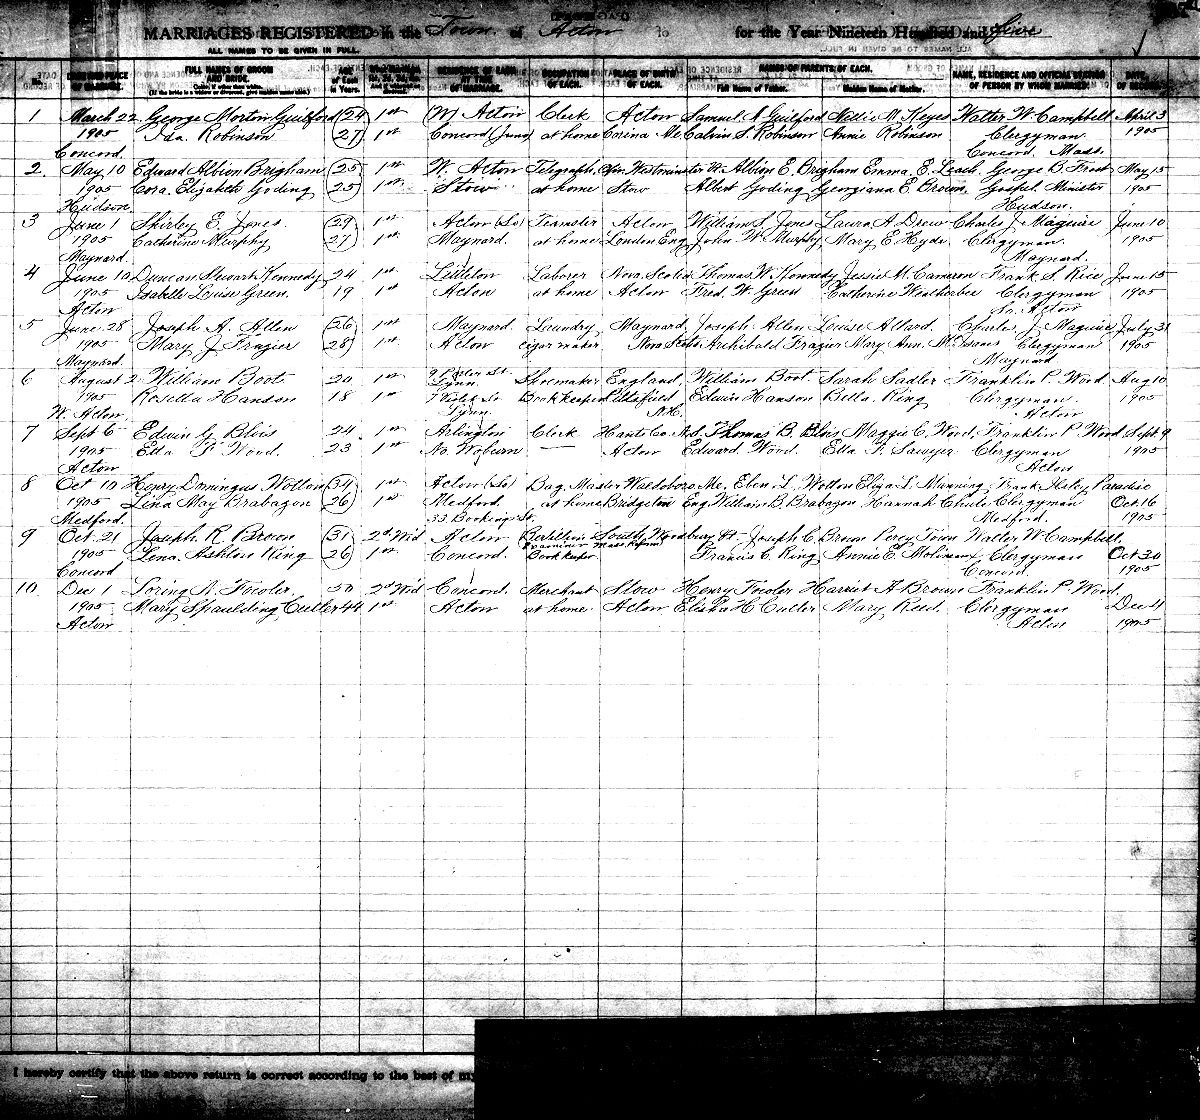 MARRIAGES REGISTERED in the Town of Acton for the Year Nineteen Hundred and five
ALL NAMES TO BE GIVEN IN FULL.
No. FULL NAMES OF GROOM AND BRIDE. OCCUPATION OF EACH. PLACE OF BIRTH OF EACH. NAMES OF PARENTS OF EACH. NAME, RESIDENCE AND OFFICIAL STATION OF PERSON BY WHOM MARRIED. DATE OF RECORD.
Full Name of Father. Maiden Name of Mother.
1 March 22 George Morton Guilford 24 1st W Acton Clerk Acton Samuel S Guilford Nellie M Keyes Walter W Campbell April 3
1905 Ida Robinson 27 1st Concord (Junc) at home Corina Me Calvin S Robinson Annie Robinson Clergyman 1905
Concord. Concord, Mass.
2. May 10 Edward Albion Brigham 25 1st W. Acton Telegraph Opr. Westminster Vt. Albion E. Brigham Emma E. Leach George B. Frost May 15
1905 Cora Elizabeth Goding 25 1st Stow at home Stow Albert Goding Georgiana E Brown Gospel Minister 1905
Hudson Hudson.
3 June 1 Shirley E. Jones 29 1st Acton (So) Teamster Acton William S. Jones Laura A Drew Charles J Maguire June 10
1905 Catharine Murphy 27 1st Maynard. at home London Eng John W Murphy Mary E Hyde Clergyman 1905
Maynard. Maynard.
4 June 10 Duncan Stewart Kennedy 24 1st Littleton Laborer Nova Scotia Thomas W. Kennedy Jessie M. Cameron Frank S Rice June 15
1905 Isabelle Louise Green. 19 1st Acton at home Acton Fred. W Green Katherine Weatherbee Clergyman 1905
Acton So. Acton
5 June 28 Joseph A. Allen 26 1st Maynard Laundry Maynard Joseph Allen Louise Allard. Charles J Maguire July 31
1905 Mary J Frazier 28 1st Acton cigar maker Nova Scotia Archibald Frazier Mary Ann Clergyman 1905
Maynard. Maynard
6 August 2 William Boot 20 1st Lynn. Shoemaker England William Boot Sarah Sadler Franklin P. Wood Aug 10
1905 Rosella Hanson 18 1st Book keeper Pittsfield Edwin Hanson Bella King Clergyman 1905
W. Acton Lynn. N.H. Acton
7 Sept 6 Edwin G Blois 24 1st Arlington Clerk Hants Co N.S. Thomas B. Blois Maggie C Wood, Franklin P Wood Sept 9
1905 Etta F Wood. 23 1st No. Woburn — Acton Edward Wood. Ella F. Sawyer Clergyman 1905
Acton Acton
8 Oct 10 Henry Domingus Wotton 34 1st Acton (So) Bag. Master Waldoboro Me. Eben L. Wotton Eliza L Munning Frank Haley Paradise
1905 Lina May Brabazon 26 1st Medford at home Bridgeton Eng William B. Brabazon Hannah Chule Clergyman Oct. 16
Medford. Medford. 1905
9 Oct. 21 Joseph R Brown 31 2d. Wid Acton South Woodbury Vt. Joseph C Brown Percy Town Walter W Campbell
1905 Lena Ashton King 26 1st Concord. Book keeper Francis C King Annie E Molineux Clergyman Oct 30
Concord Concord 1905
10 Dec 1 Loring N. Fowler 50 2d Wid Concord. Merchant Stow Henry Fowler Harriet A Brown Franklin P. Wood
1905 Mary Spaulding Cutler 44 1st Acton at home Acton Elisha H Cutler Mary Reed Clergyman Dec 4
Acton Acton 1905
I hereby certify that the above return is correct according to the best of my